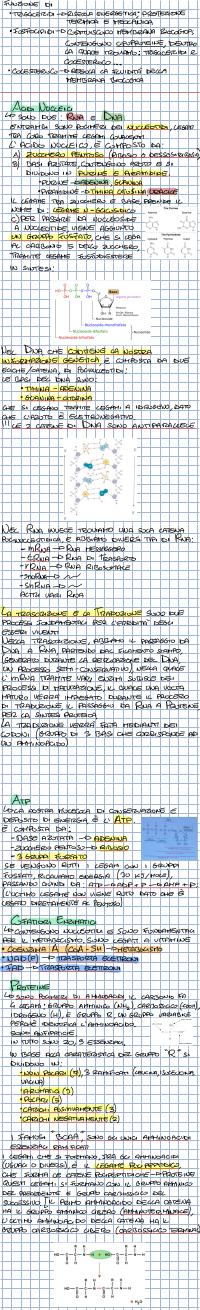 FUNZIONE DI
• TRIGLICERIDI → RISERVA ENERGETICA, PROTEZIONE
TERMICA E MECCANICA
• FOSFOLIPIDI → COSTITUISCONO MEMBRANA BIOLOGICA,
CONTENGONO
COLESTEROLO...
• COLESTEROLO → REGOLA LA FLUIDITÀ DELLA
MEMBRANA BIOLOGICA
ACIDI NUCLEICI
↳ SONO DUE: RNA E DNA
ENTRAMBI SONO POLIMERI DEI NUCLEOTIDI, LEGATI
TRA LORO TRAMITE LEGAMI COVALENTI
L'ACIDO NUCLEICO, È COMPOSTO DA:
A) ZUCCHERO PENTOSO (RIBOSIO O DESOSSIRIBOSIO)
B) BASI AZOTATE CONTENGONO AZOTO E SI
DIVIDONO IN PURINE E PIRIMIDINE
• PURINE → ADENINA, GUANINA
• PIRIMIDINE → TIMINA CITOSINA URACILE
IL LEGAME TRA ZUCCHERO E BASE, PRENDE IL
NOME DI: LEGAME N-GLICOSIDICO
C) PER PASSARE DA NUCLEOSIDE
A NUCLEOTIDE, VIENE AGGIUNTO
UN GRUPPO FOSFATO, CHE SI LEGA
AL CARBONIO 5 DELLO ZUCCHERO,
TRAMITE LEGAME FOSFODIESTERE
IN SINTESI:
Base
Nucleoside
Nucleoside-monofosfato
Nucleoside-difosfato
Nucleoside-trifosfato
NEL DNA CHE CONTIENE LA NOSTRA
INFORMAZIONE GENETICA È COMPOSTA DA DUE
ELICHE/CATENA DI POLINUCLEOTIDI:
LE BASI DEL DNA SONO:
• TIMINA - ADENINA
• GUANINA - CITOSINA
CHE SI LEGANO TRAMITE LEGAMI A IDROGENO, DATO
CHE L'AZOTO È ELETTRONEGATIVO.
!!! LE 2 CATENE DI DNA SONO ANTIPARALLELE
NEL RNA INVECE TROVIAMO UNA SOLA CATENA
POLINUCLEOTIDICA, E ABBIAMO DIVERSI TIPI DI RNA:
- mRNA → RNA MESSAGGERO
- tRNA → RNA DI TRASPORTO
- rRNA → RNA RIBOSOMALE
- snoRNA →
- shRNA →
ALTRI VARI RNA
LA TRASCRIZIONE E LA TRADUZIONE SONO DUE
PROCESSI FONDAMENTALI PER L'EREDITÀ DEGLI
ESSERI VIVENTI
NELLA TRASCRIZIONE, ABBIAMO IL PASSAGGIO DA
DNA A RNA PARTENDO DAL FILAMENTO STAMPO,
GENERATO DURANTE LA REPLICAZIONE DEL DNA,
UN PROCESSO SEMI-CONSERVATIVO, NELLA QUALE
L'mRNA TRAMITE VARI ENZIMI SUBISCE DEI
PROCESSI DI MATURAZIONE, IL QUALE UNA VOLTA
MATURO VERRÀ IMPIEGATO DURANTE IL PROCESSO
DI TRADUZIONE, IL PASSAGGIO DA RNA A PROTEINE
PER LA SINTESI PROTEICA
LA TRADUZIONE VERRÀ FATTA MEDIANTE DEI
CODONI (GRUPPO DI 3 BASI CHE CORRISPONDE AD
UN AMINOACIDO)
ATP
↳ LA NOSTRA MOLECOLA DI CONSERVAZIONE E
DEPOSITO DI ENERGIA È L'ATP.
È COMPOSTA DA:
- BASE AZOTATA → ADENINA
- ZUCCHERO PENTOSO → RIBOSIO
- 3 GRUPPI FOSFATO
SE VENGONO ROTTI I LEGAMI CON I GRUPPI
FOSFATI, RICAVIAMO ENERGIA (30 KJ/MOLE),
PASSANDO QUINDI DA: ATP → ADP + P → AMP + P
(L'ULTIMO LEGAME NON VIENE ROTTO DATO CHE È
LEGATO DIRETTAMENTE AL PENTOSO)
COFATTORI ENZIMATICI
↳ CONTENGONO NUCLEOTIDI E SONO FONDAMENTALI
PER IL METABOLISMO, SONO LEGATI A VITAMINE
• COENZIMA A (COA-SH) → METABOLISMO
• NAD(P) → TRASPORTA ELETTRONI
• FAD → TRASPORTA ELETTRONI
PROTEINE
↳ SONO POLIMERI DI AMINOACIDI, IL CARBONIO FA
4 LEGAMI: GRUPPO AMINICO (NH₂), CARBOSSILICO (COOH),
IDROGENO (H), E GRUPPO R, UN GRUPPO VARIABILE
PERCHÉ IDENTIFICA L'AMINOACIDO.
SONO ANFOTERICI.
IN TUTTO SONO 20, 9 ESSENZIALI.
IN BASE ALLA CARATTERISTICA DEL GRUPPO "R" SI
DIVIDONO IN:
• NON POLARI (7), 3 RAMIFICATI (LEUCINA, ISOLEUCINA,
VALINA)
• AROMATICI (3)
• POLARI (5)
• CARICHI POSITIVAMENTE (3)
• CARICHI NEGATIVAMENTE (2)
I FAMOSI "BCAA", SONO GLI UNICI AMINOACIDI
ESSENZIALI RAMIFICATI
I LEGAMI CHE SI FORMANO, TRA GLI AMINOACIDI
(UGUALI O DIVERSI), È IL LEGAME POLIPEPTIDICO,
CHE FORMA LE CATENE POLIPEPTIDICHE → PROTEINE
QUESTI LEGAMI SI FORMANO CON IL GRUPPO AMINICO
DEL PRECEDENTE E GRUPPO CARBOSSILICO DEL
SUCCESSIVO, IL PRIMO AMINOACIDO DELLA CATENA
HA IL GRUPPO AMINICO LIBERO (AMINOTERMINALE),
L'ULTIMO AMINOACIDO DELLA CATENA HA IL
GRUPPO CARBOSSILICO LIBERO (CARBOSSILICO TERMINALE)
+ H₂O